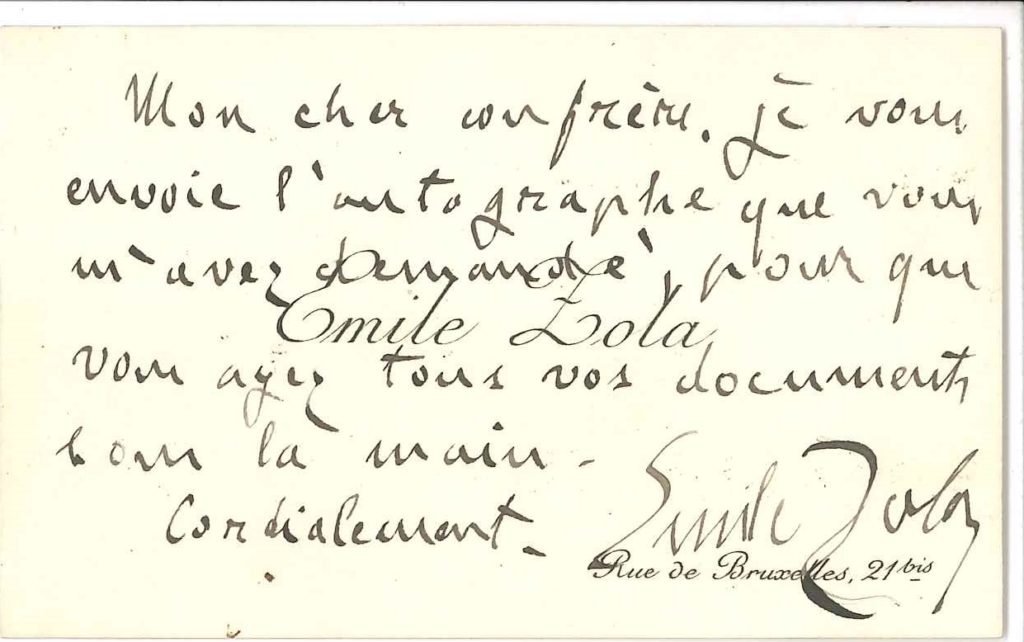 Mon cher confrère, je vous
envoie l'autographe que vous
m'avez demandé, pour que
Emile Zola
vous ayez tous vos documents
sous la main -
Cordialement -
Emile Zola
Rue de Bruxelles, 21 bis